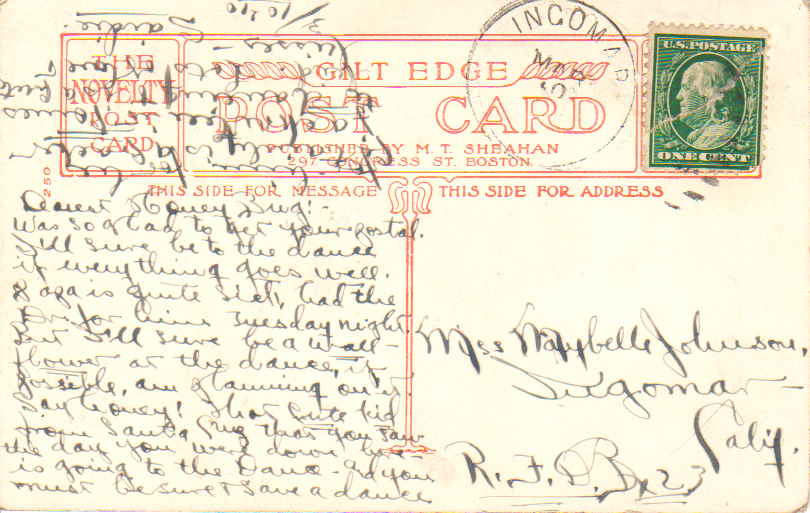 THE
NOVELTY
POST
CARD
GILT EDGE
POST CARD
PUBLISHED BY M. T. SHEAHAN
297 CONGRESS ST. BOSTON
250
INGOMAR
U.S. POSTAGE
ONE CENT
THIS SIDE FOR MESSAGE
THIS SIDE FOR ADDRESS
Dearest Honey Bug!-
Was so glad to get your postal.
I'll sure be to the dance
if everything goes well.
Papa is quite sick, had the
Dr. for him Tuesday night.
But I'll sure be a wall-
flower at the dance, if
possible, am planning on it.
Say honey! That cute kid
from Santa Cruz that you saw
the day you were down here
is going to the Dance - and you
must be sure & save a dance
Miss Maybelle Johnson,
Ingomar
Calif.
R. F. D. Bx 23